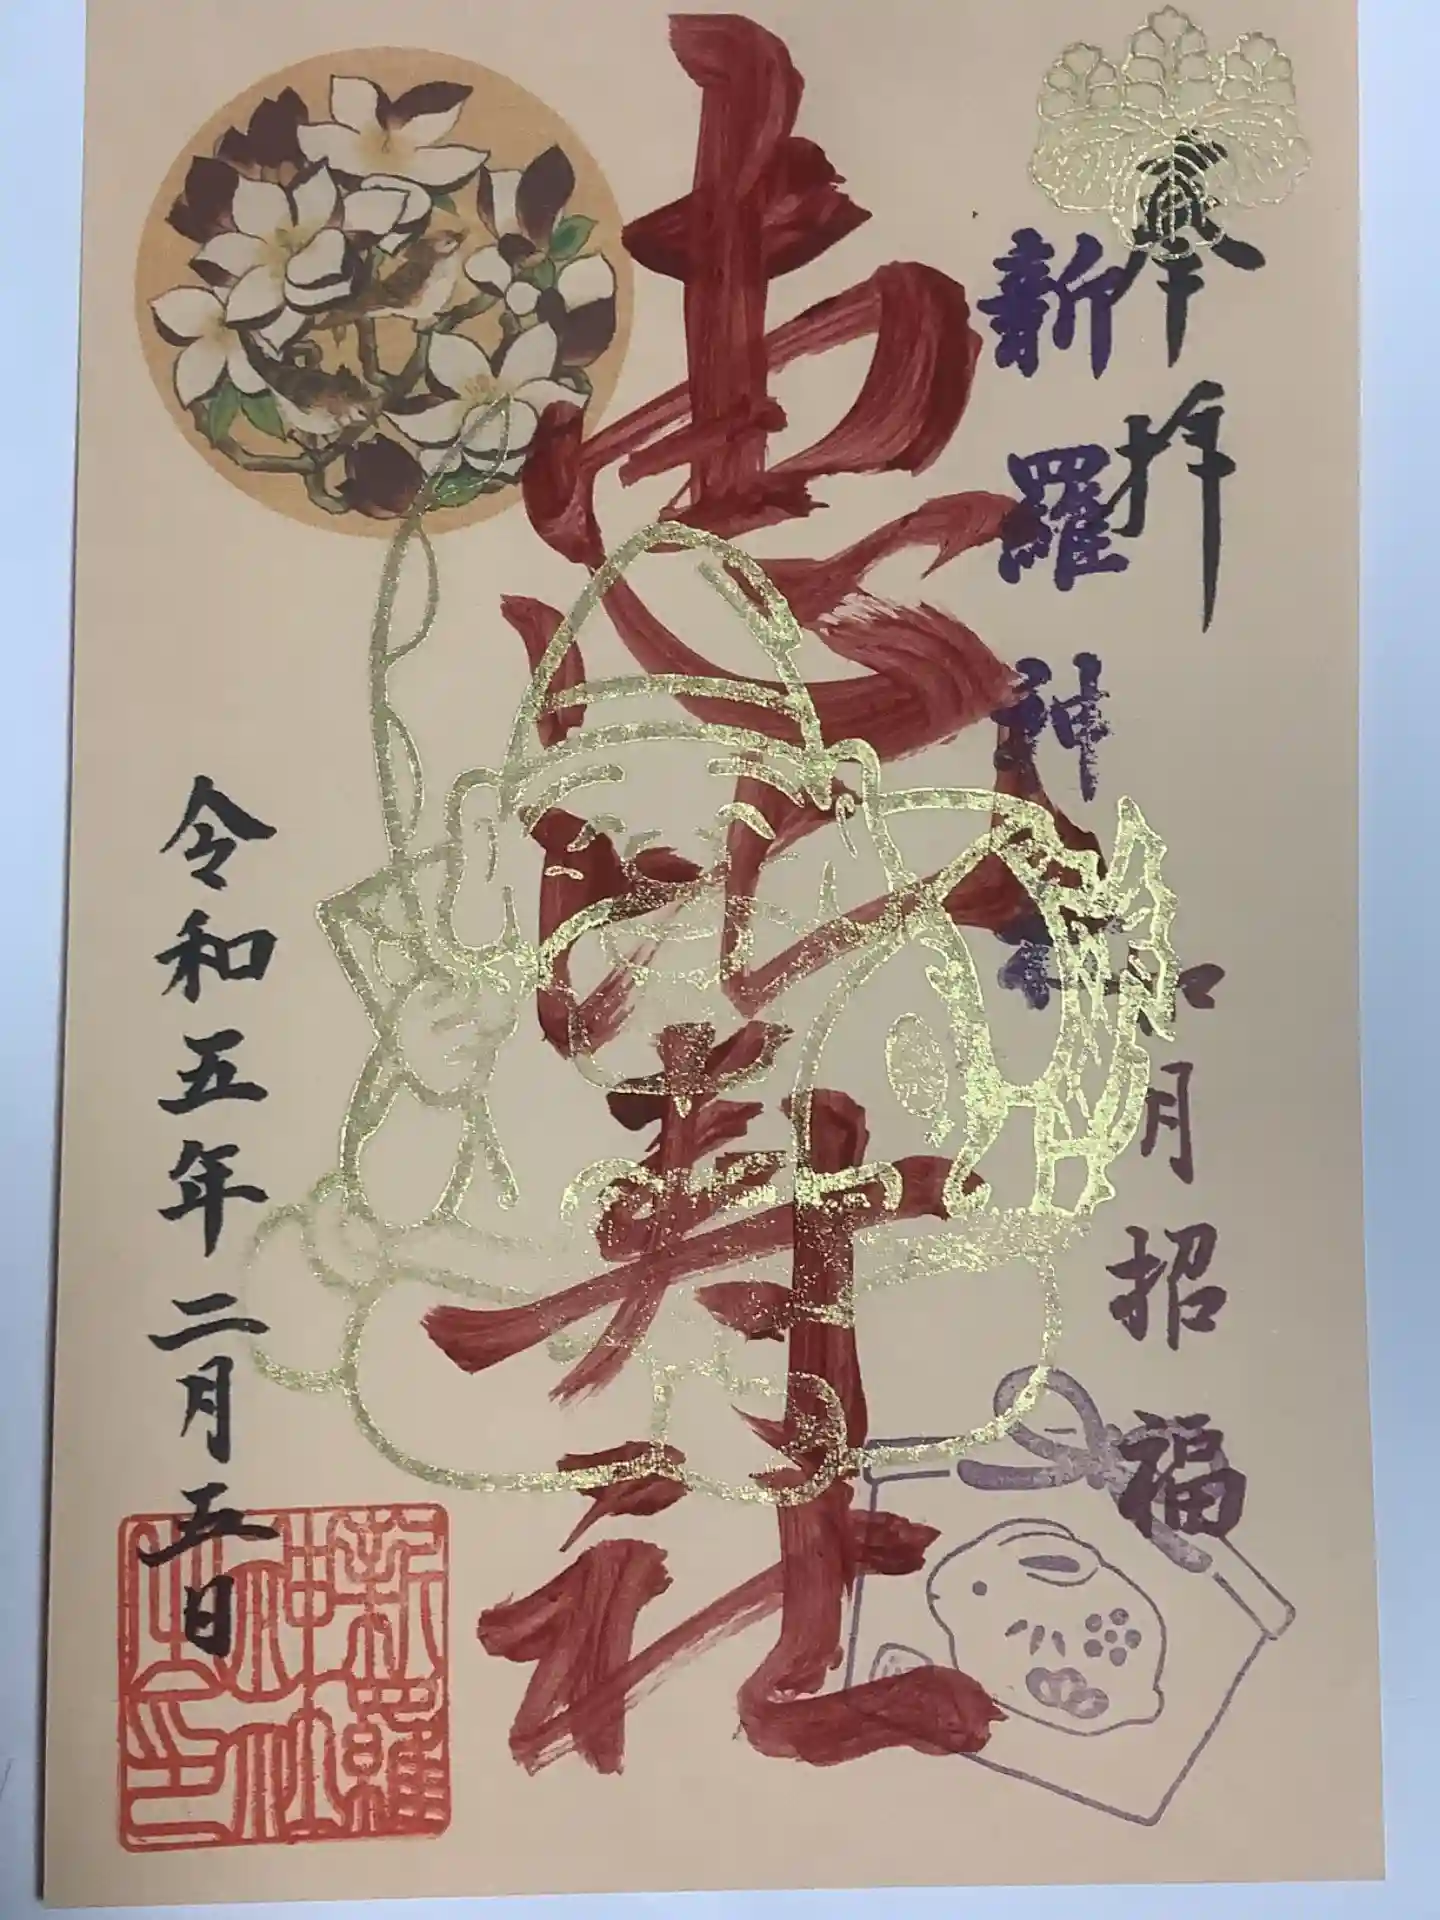 奉拝
如月招福
新羅神社
恵比寿社
令和五年二月五日
新羅
神社
之印